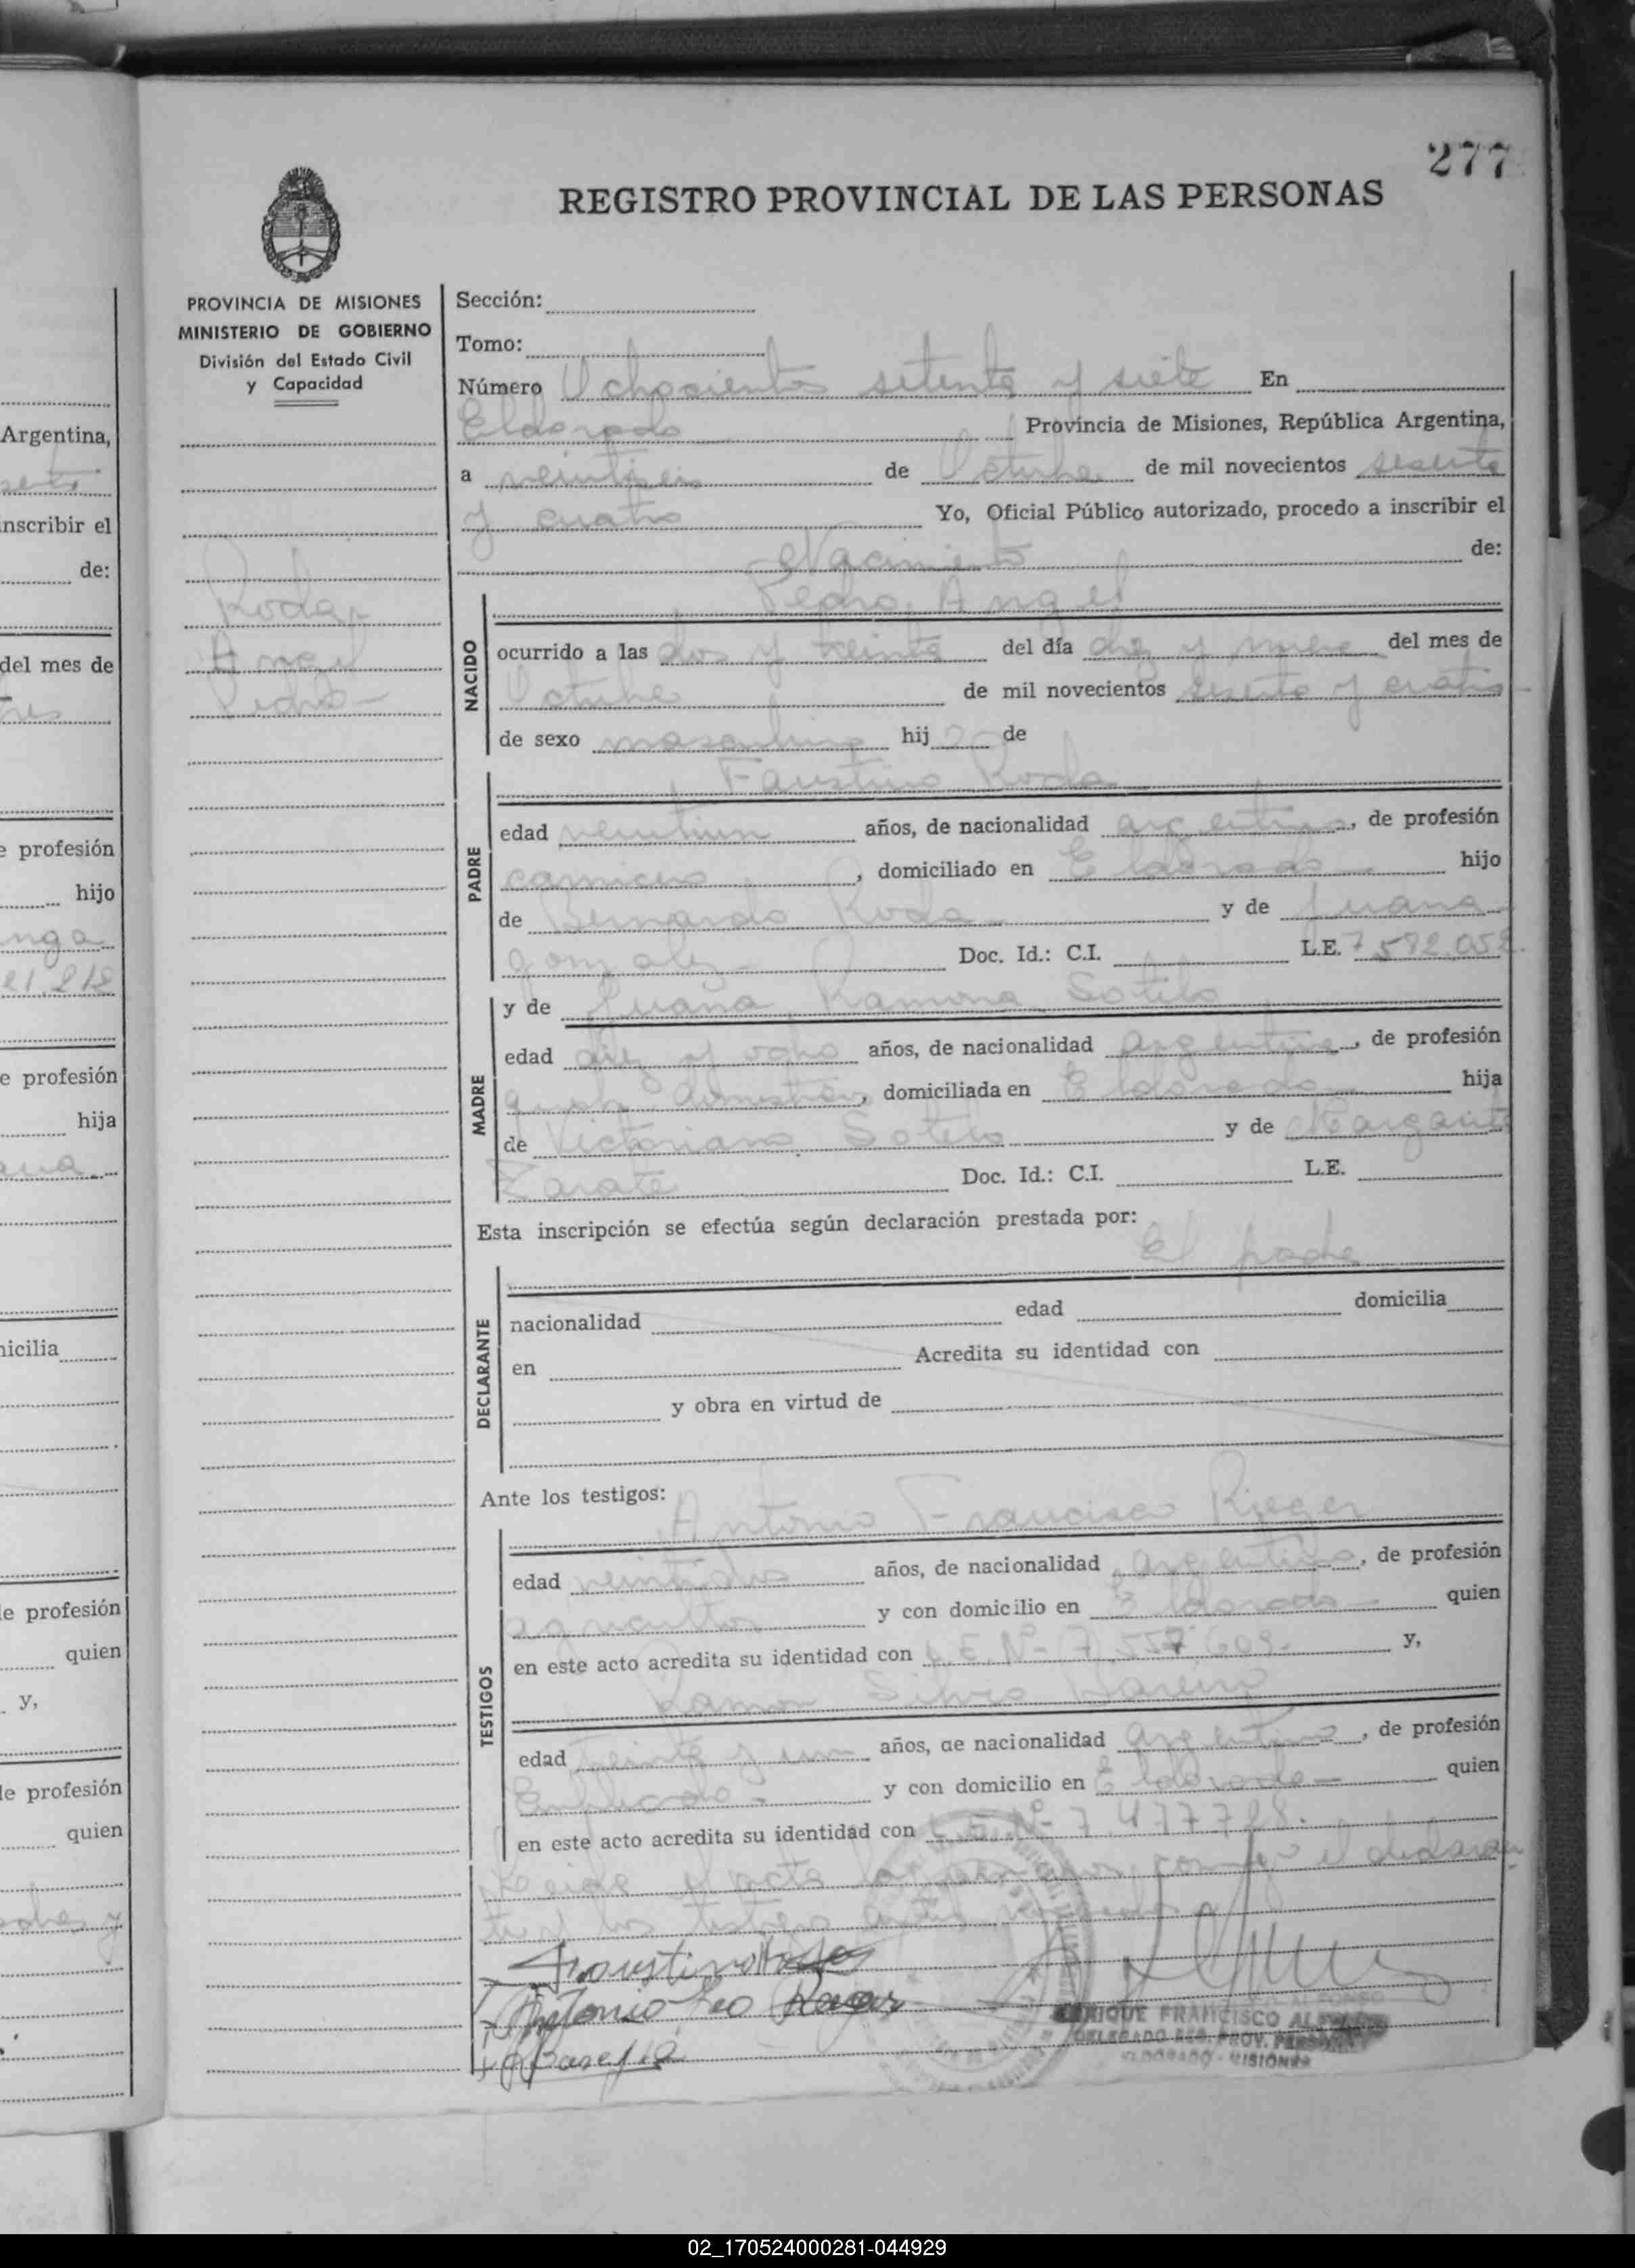 277
REGISTRO PROVINCIAL DE LAS PERSONAS
PROVINCIA DE MISIONES
MINISTERIO DE GOBIERNO
División del Estado Civil
y Capacidad
Sección:
Tomo:
Número Ochocientos setenta y siete En
Eldorado Provincia de Misiones, República Argentina,
a veintiseis de Octubre de mil novecientos sesenta
y cuatro Yo, Oficial Público autorizado, procedo a inscribir el
Nacimiento de:
Roda
Angel
Pedro
Pedro Angel
NACIDO
ocurrido a las dos y treinta del día diez y nueve del mes de
Octubre de mil novecientos sesenta y cuatro
de sexo masculino hij o de
Faustino Roda
PADRE
edad veintiun años, de nacionalidad argentino, de profesión
carnicero, domiciliado en Eldorado hijo
de Bernardo Roda y de Juana
Gonzalez Doc. Id.: C.I. L.E. 7.592.052.
MADRE
y de Juana Ramona Sotelo
edad diez y ocho años, de nacionalidad argentina, de profesión
, domiciliada en Eldorado hija
de Victoriano Sotelo y de Margarita
Zarate Doc. Id.: C.I. L.E.
Esta inscripción se efectúa según declaración prestada por:
El padre
DECLARANTE
nacionalidad edad domicilia
en Acredita su identidad con
y obra en virtud de
Ante los testigos:
Antonio Francisco Rieger
TESTIGOS
edad veintidos años, de nacionalidad argentino, de profesión
agricultor y con domicilio en Eldorado quien
en este acto acredita su identidad con L.E. Nº 7.557.609. y,
Ramon Silvio
edad treinta y un años, de nacionalidad argentino, de profesión
Empleado y con domicilio en Eldorado quien
en este acto acredita su identidad con L.E. Nº 7.477.788.
Leida el acta la firman conmigo el declaran
te y los testigos antes
Faustino Roda
Antonio Fco Rieger
ENRIQUE FRANCISCO ALFONSO
DELEGADO REG. PROV. PERSONAS
ELDORADO - MISIONES
Argentina,
inscribir el
de:
del mes de
e profesión
hijo
21.212
e profesión
hija
icilia
le profesión
quien
y,
le profesión
quien
02_170524000281-044929